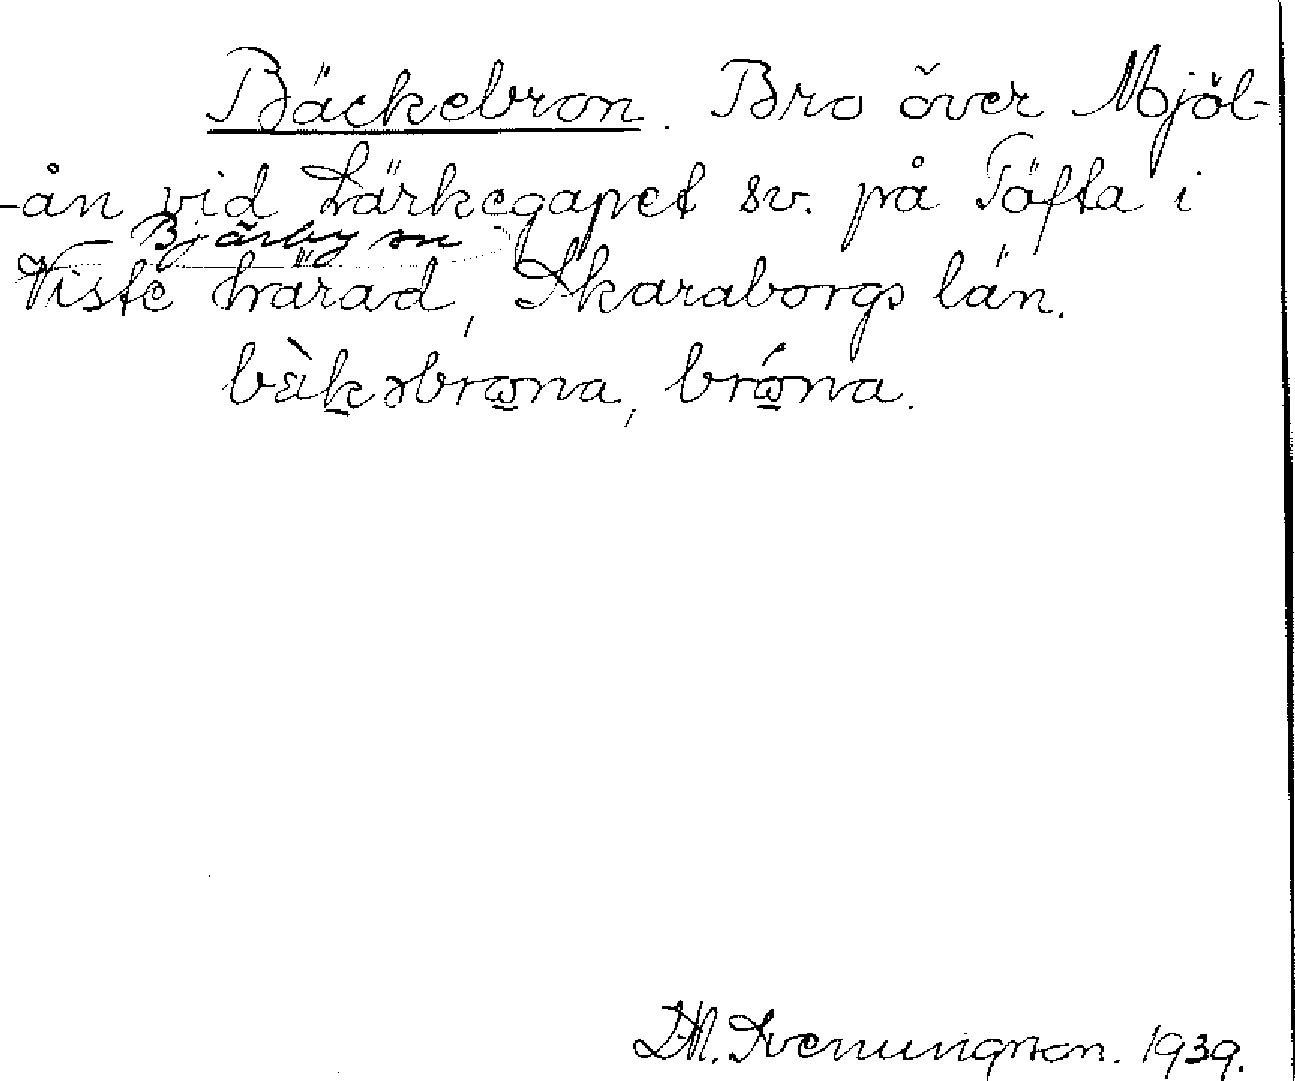 Bäckebron. Bro över Mjöl-
-ån vid Lärkegapet sv. på Töfta i
Bjärby sn
Viste härad, Skaraborgs län.
bὲkəbrωna, brώna.
D.M. Svenungsson. 1939.